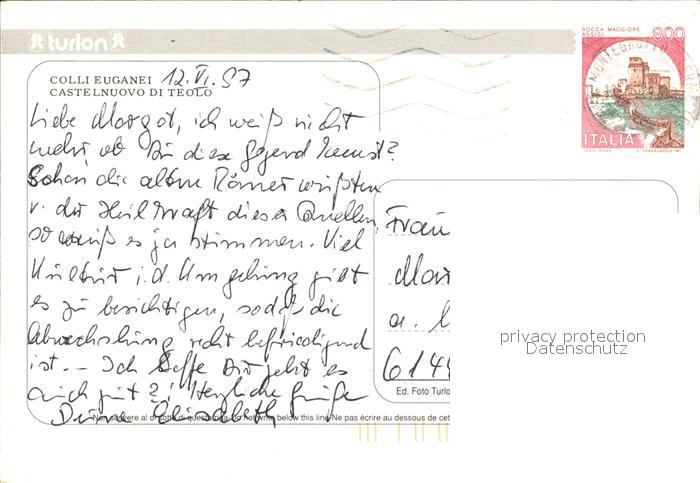 turlon
ROCCA MAGGIORE
ASSISI
800
ITALIA
MONTEGROTTO
COLLI EUGANEI 12.VI.97
CASTELNUOVO DI TEOLO
Liebe Margot, ich weiß nicht
mehr ob Du diese Gegend kennst?
Schon die alten Römer wußten
v. der Heilkraft dieser Quellen,
so muß es ja stimmen. Viel
Kultur i. d. Umgebung gibt
es zu besichtigen, sodaß die
Abwechslung recht befriedigend
ist. – Ich hoffe Dir geht es
auch gut? Herzliche Grüße
Deine Elisabeth
Non scrivere al di sotto di questa Do not write below this line/Ne pas écrire au dessous de cet
Frau
Mar
a.
6144
Ed. Foto Turlo
privacy protection
Datenschutz